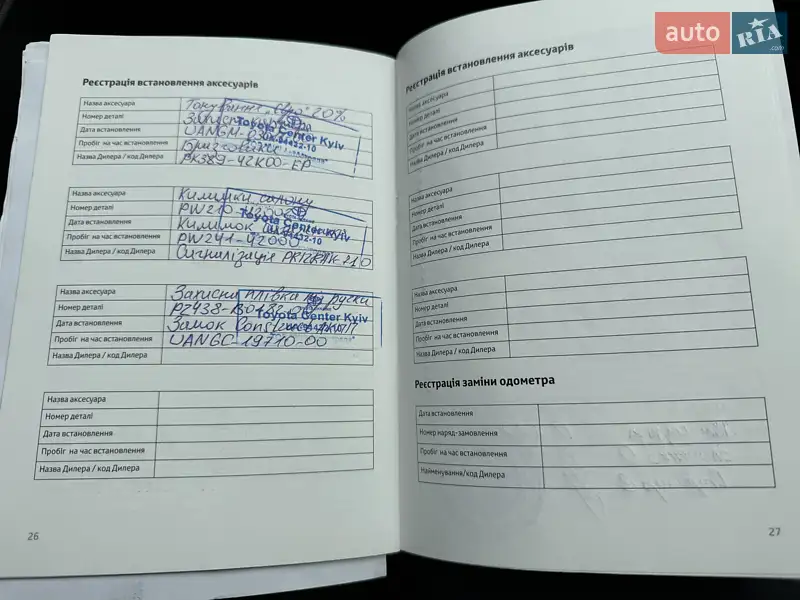 auto RIA.com
Реєстрація встановлення аксесуарів
Назва аксесуара Тонування 20%
Номер деталі
Дата встановлення
Toyota Center Kyiv
Пробіг на час встановлення
Назва Дилера / код Дилера PK389-42K00-EP
Назва аксесуара Килимки салону
Номер деталі PW210-
Toyota Center Kyiv
Дата встановлення Килимок
Пробіг на час встановлення PW241-42000
Назва Дилера / код Дилера Сигналізація
Назва аксесуара плівка під ручки
Номер деталі PZ438-
Toyota Center Kyiv
Дата встановлення Замок
Пробіг на час встановлення UANGC-19710-00
Назва Дилера / код Дилера
Назва аксесуара
Номер деталі
Дата встановлення
Пробіг на час встановлення
Назва Дилера / код Дилера
26
Реєстрація встановлення аксесуарів
Назва аксесуара
Номер деталі
Дата встановлення
Пробіг на час встановлення
Назва Дилера / код Дилера
Назва аксесуара
Номер деталі
Дата встановлення
Пробіг на час встановлення
Назва Дилера / код Дилера
Назва аксесуара
Номер деталі
Дата встановлення
Пробіг на час встановлення
Назва Дилера / код Дилера
Реєстрація заміни одометра
Дата встановлення
Номер наряд-замовлення
Пробіг на час встановлення
Найменування/код Дилера
27